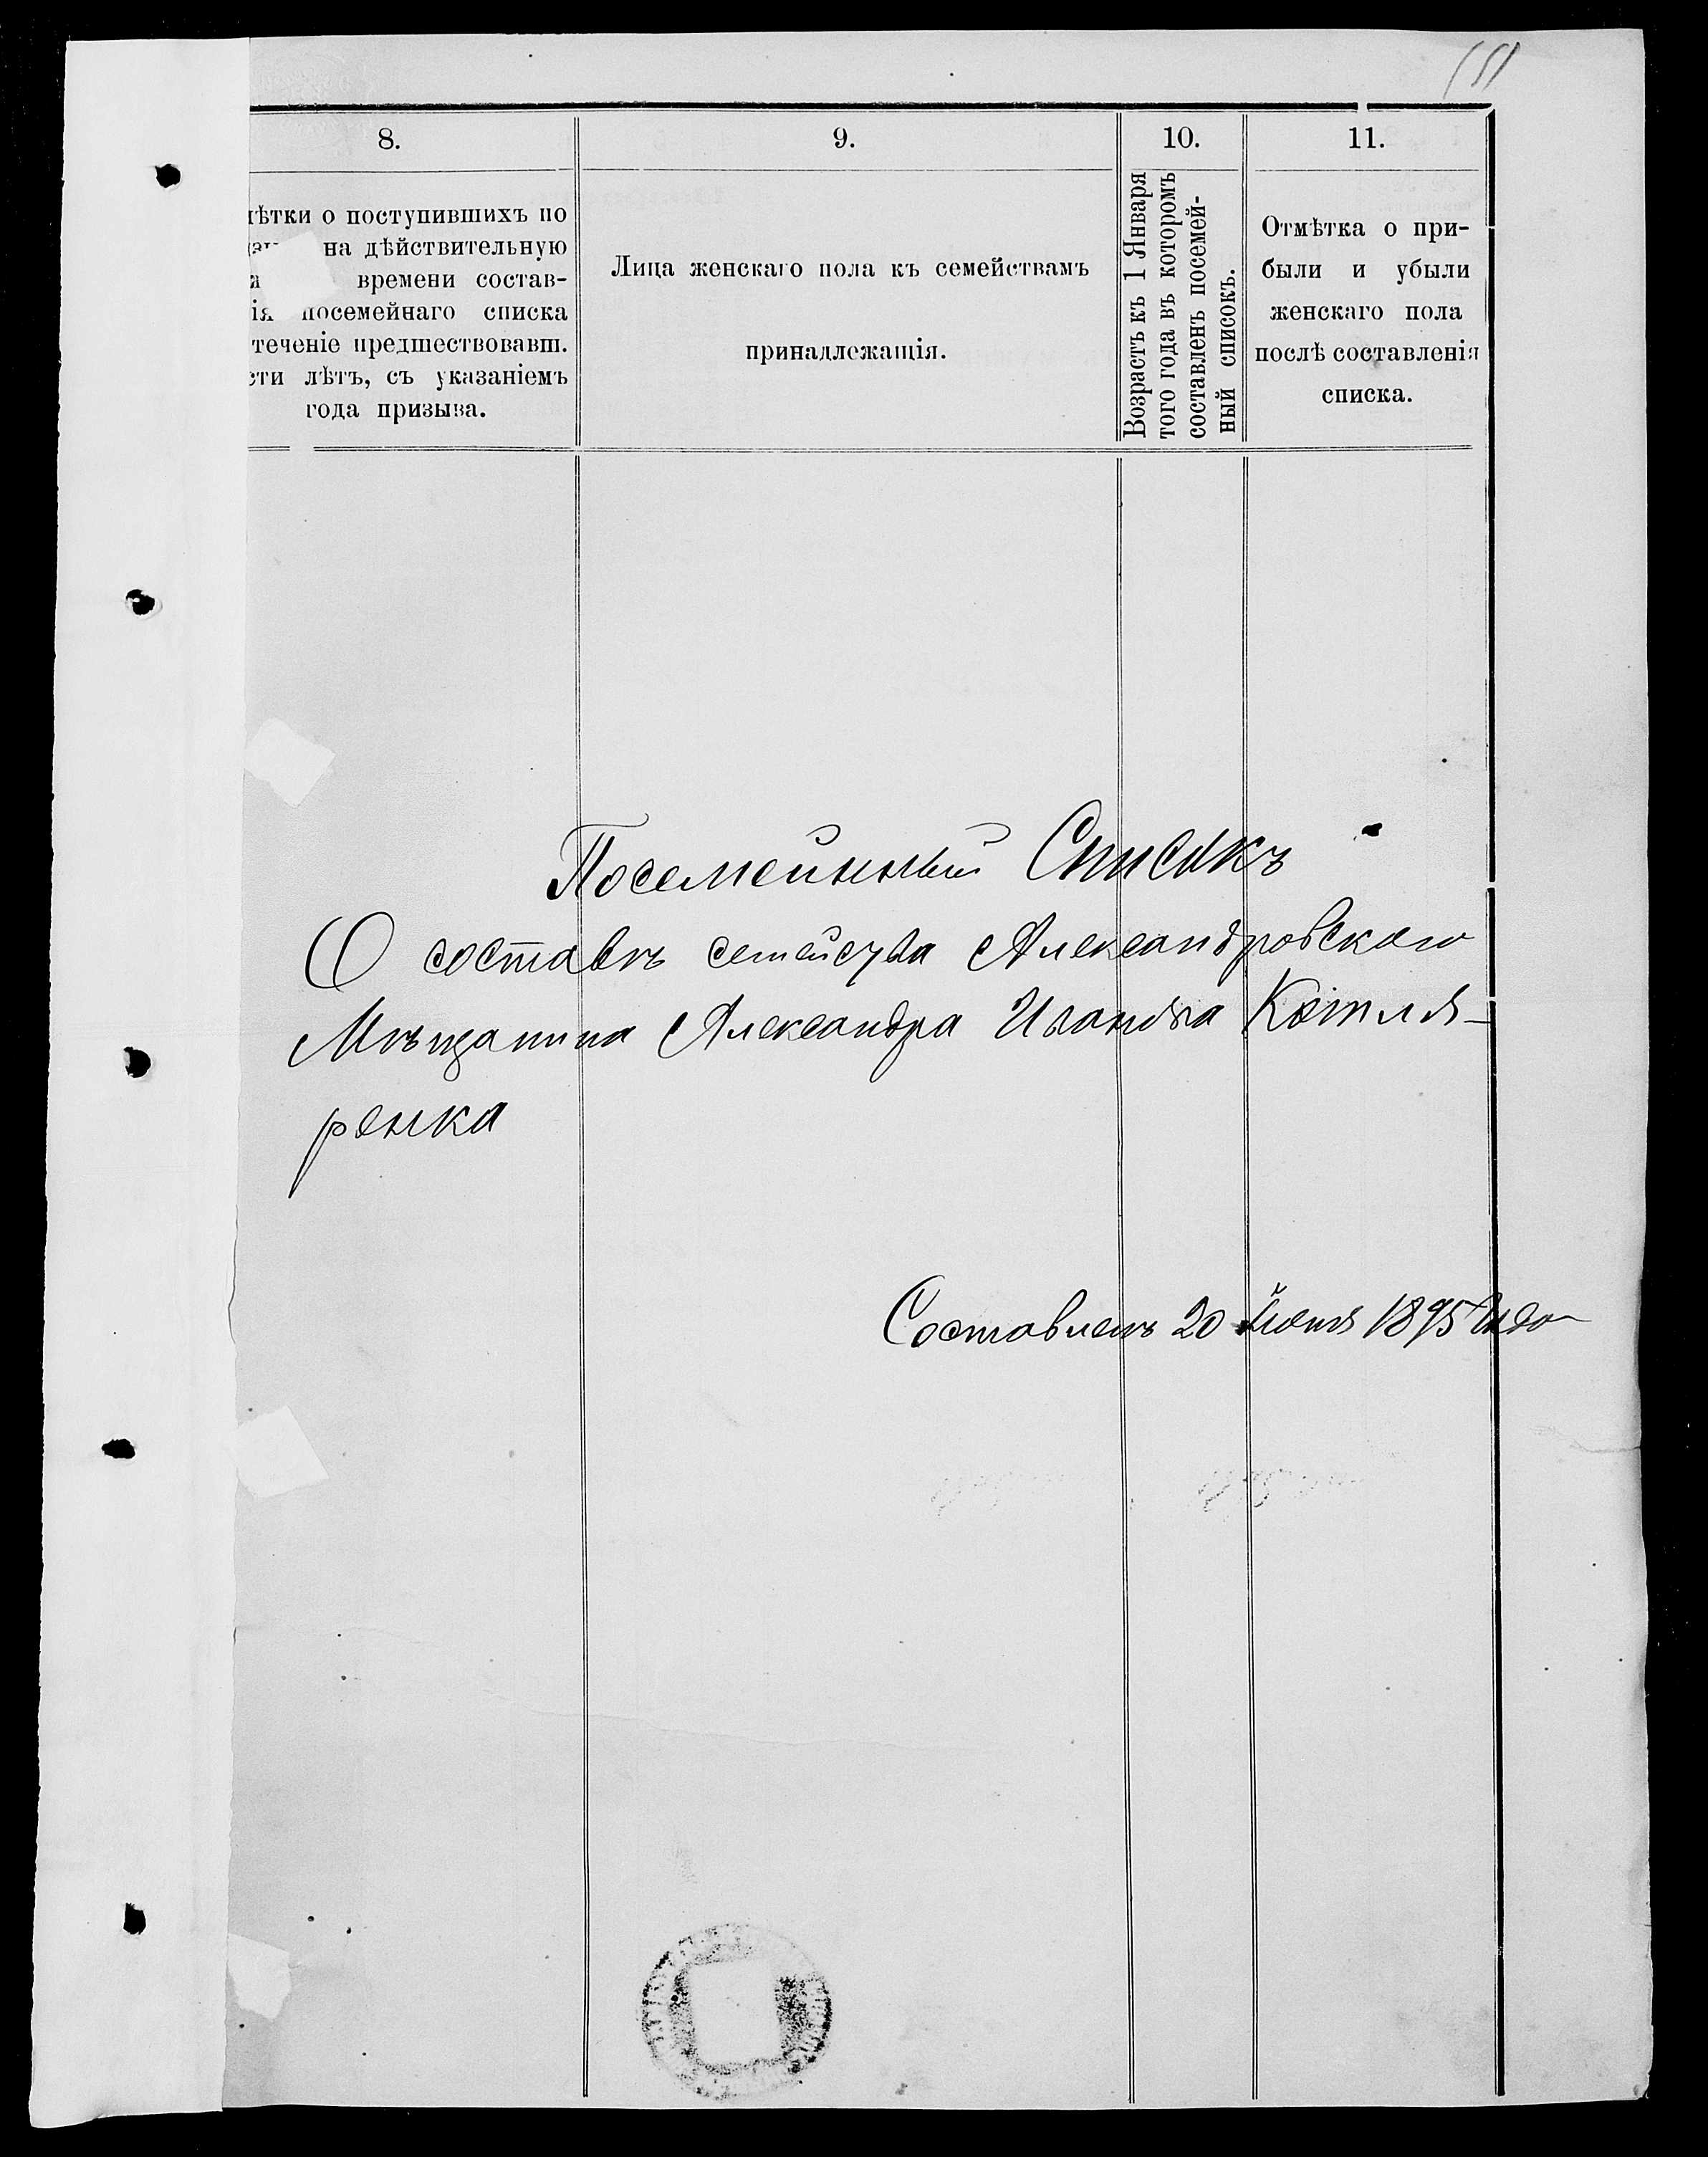 151
8.
9.
10.
11.
ѣтки о поступившихъ по
на дѣйствительную
времени состав-
ія посемейнаго списка
теченіе предшествовавш.
сти лѣтъ, съ указаніемъ
года призыва.
Лица женскаго пола къ семействамъ
принадлежащія.
Возрастъ къ 1 Января
того года въ которомъ
составленъ посемей-
ный списокъ.
Отмѣтка о при-
были и убыли
женскаго пола
послѣ составленія
списка.
Посемейнный Списокъ
О составѣ семейства Александровского
Мѣщанина Александра Иванова Котля-
ренка
Составленъ 20 1895 года